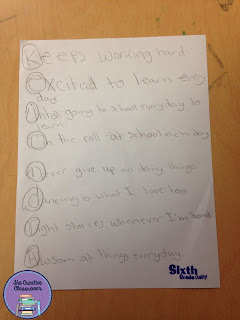 Keeps working hard
Excited to learn every
day
Into going to school everyday to
learn.
On the roll at school each day
Never give up on doing things
dancing is what I love too
Right stories whenever I'm bored
Awsom at things everyday
Sixth
Grade Unity!
The Creative
Classroom